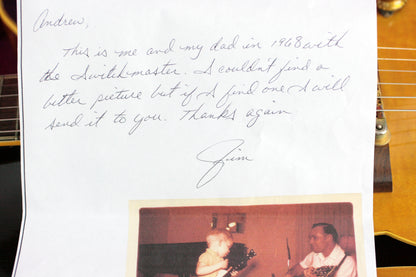 Andrew,
This is me and my dad in 1968 with
the Switchmaster. I couldn't find a
better picture but if I find one I will
send it to you. Thanks again
Jim